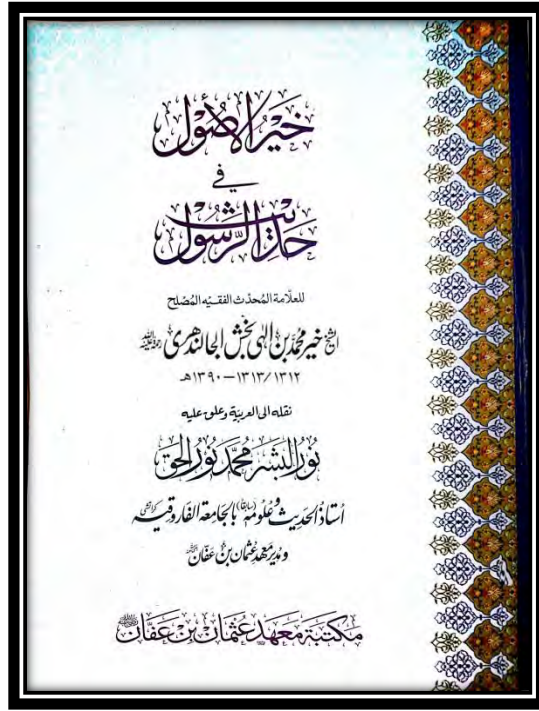 خَيْرُ الأُصُوْل
في
حَدِيْثِ الرَّسُوْل
للعلّامة المُحدّث الفقيه المُصلح
الشيخ خير محمد بن الٰہی بخش الجالندھری رحمة الله عليه
۱۳۱۲/۱۳۱۳ – ۱۳۹۰هـ
نقله الى العربية وعلق عليه
نُورُ البَشَر مُحَمَّد نُورُ الحَقّ
أستاذ الحديث وعُلُومه (سابقا) بالجامعة الفاروقيه كراتشي
ومدير معهد عثمان بن عفان
مكتبة معهد عثمان بن عفّان